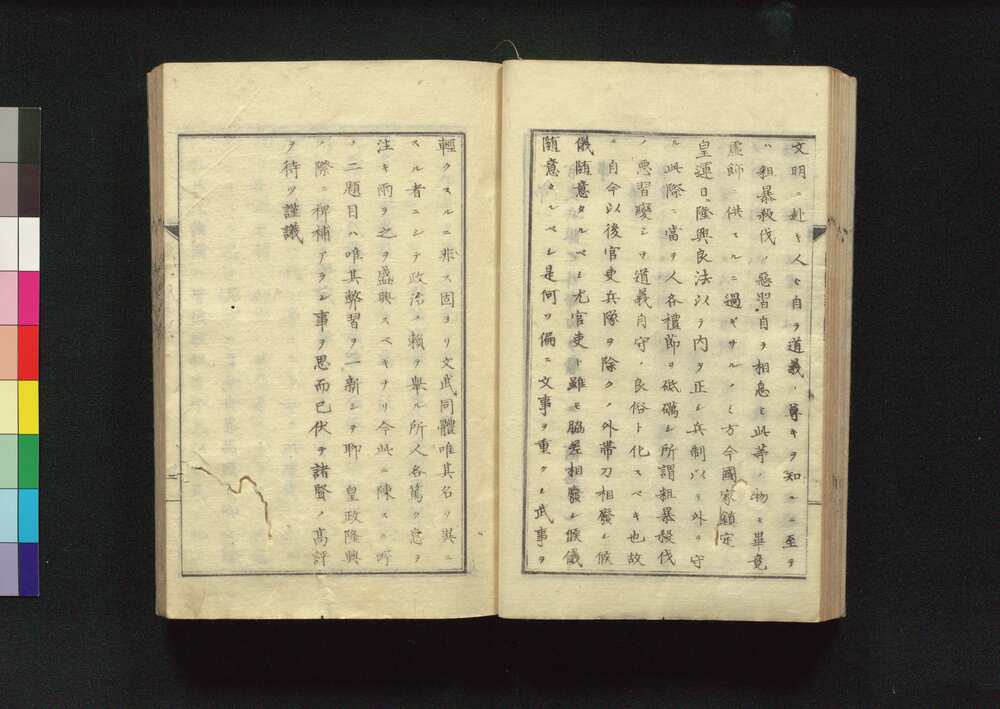 文明ニ赴キ人々自ラ道義ノ尊キヲ知ニ至テ
ハ粗暴殺伐ノ惡習自ラ相息ミ此等ノ物モ畢竟
虚飾ニ供スルニ過ギサルノミ方今國家鎮定
皇運日ニ隆興良法以テ内ヲ正シ兵制以テ外ヲ守
ル此際ニ當テ人各禮節ヲ砥礪シ所謂粗暴殺伐
ノ悪習變シテ道義自守ノ良俗ト化スベキ也故
ニ自今以後官吏兵隊ヲ除クノ外帶刀相廢シ候
儀隨意タルベシ尤官吏ト雖モ脇差相廢シ候儀
隨意タルベシ是何ソ偏ニ文事ヲ重クシ武事ヲ
輕クスルニ非ス固ヨリ文武同體唯其名ヲ異ニ
スル者ニシテ政治ノ賴テ舉ル所人各篤ク意ヲ
注キ兩ラ之ヲ盛興スベキナリ今此ニ陳スル所
ノ二題目ハ唯其弊習ヲ一新シテ聊 皇政隆興
ノ際ニ裨補アラン事ヲ思而已伏テ諸賢ノ高評
ヲ待ツ謹議